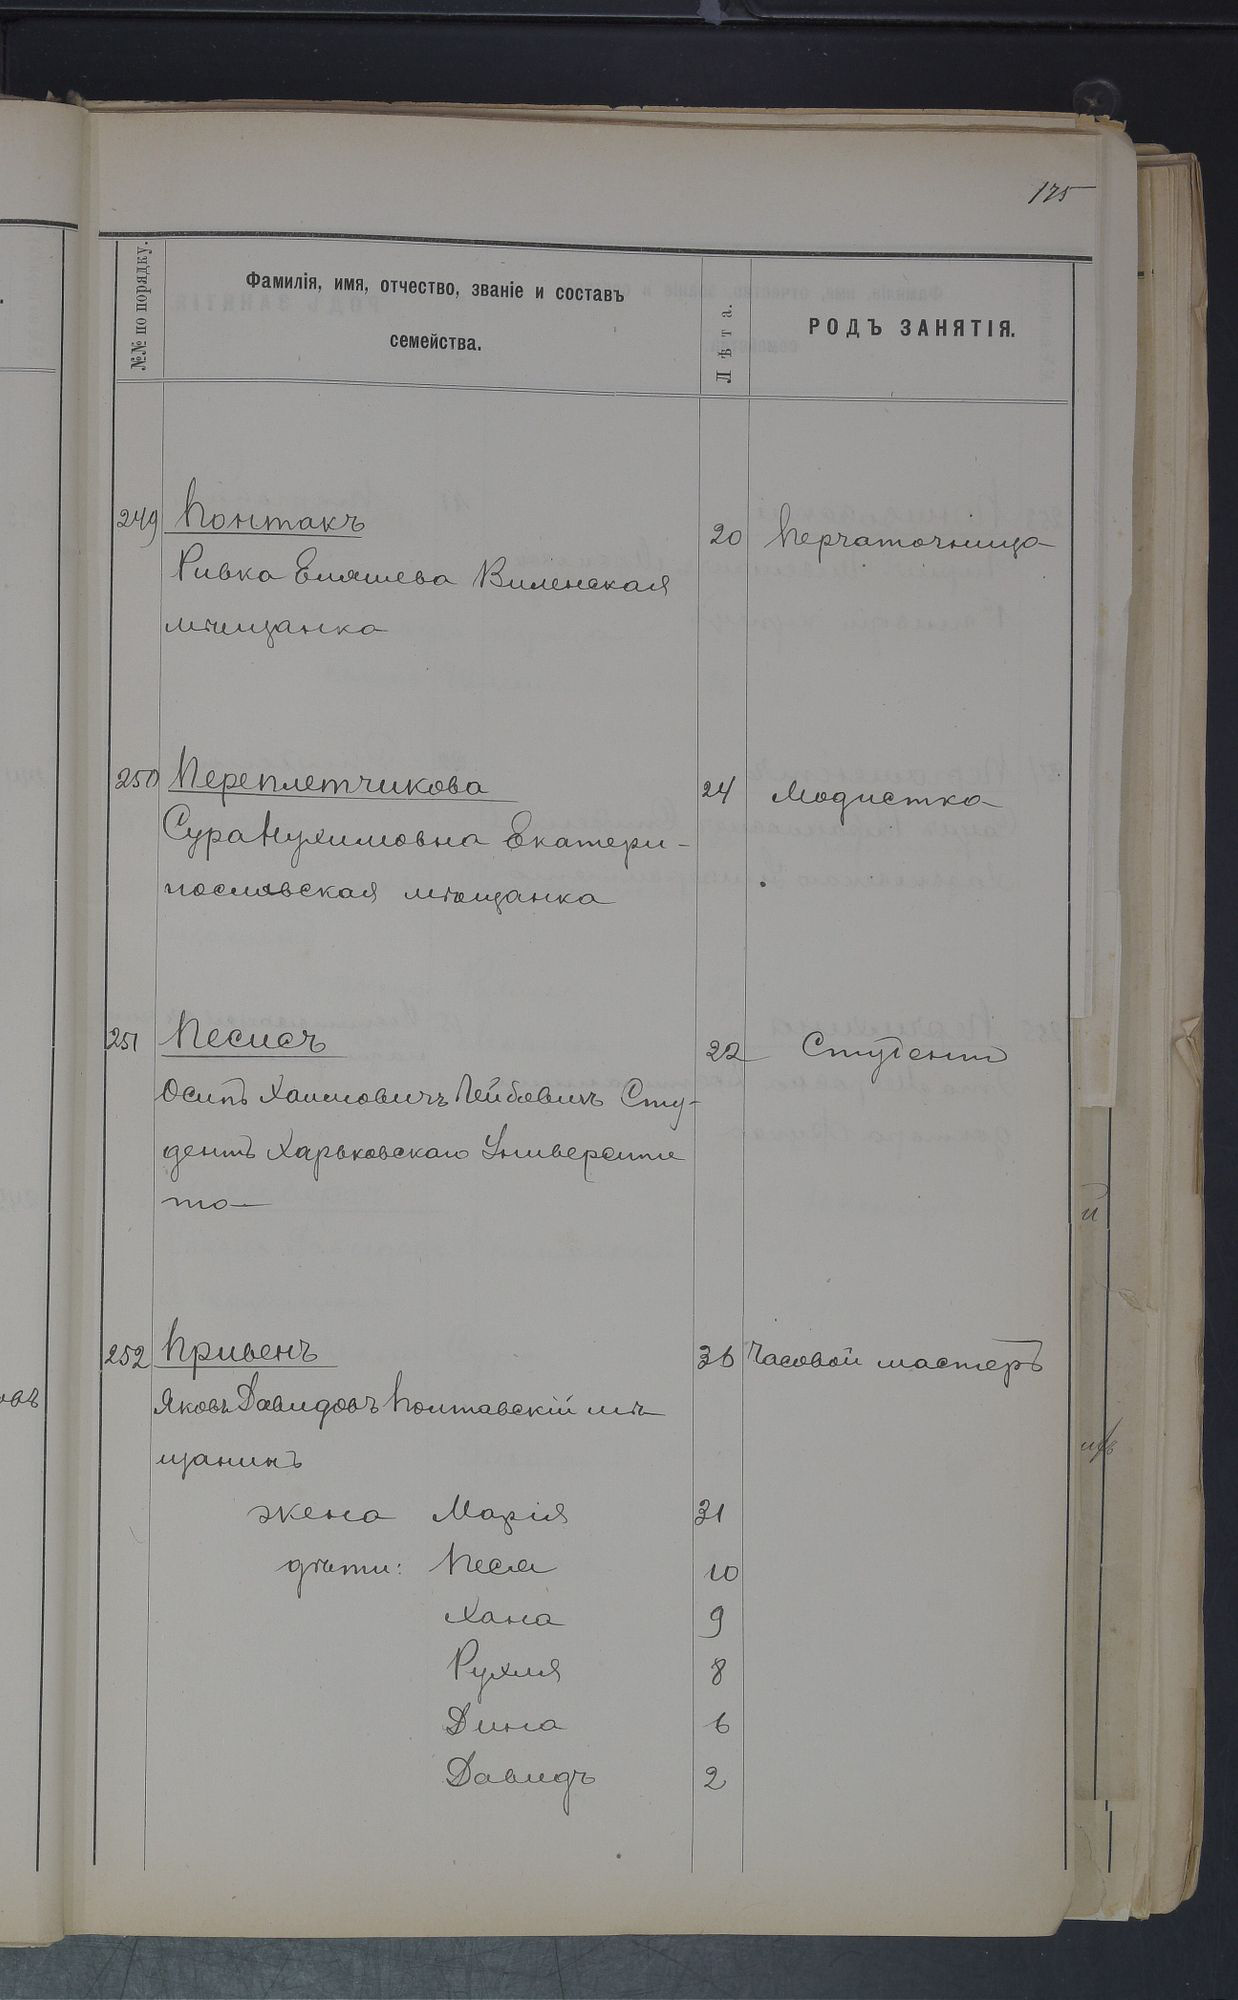 175
№№ по порядку.
Фамилія, имя, отчество, званіе и составъ
семейства.
Лѣта.
РОДЪ ЗАНЯТІЯ.
249 Понтакъ 20 Перчаточница
Ривка Еляшева Виленская
мѣщанка
250 Переплетчикова 24 Модистка
Сура Нухимовна Екатери-
нославская мѣщанка
251 Песисъ 22 Студентъ
Осипъ Хаимовичъ Лейбовичъ Сту-
дентъ Харьковскаго Университе
та
252 Привенъ 36 Часовой мастеръ
Яковъ Давидовъ Полтавскій мѣ
щанинъ
жена Марія 31
дѣти: Песя 10
Хана 9
Рухля 8
Дина 6
Давидъ 2